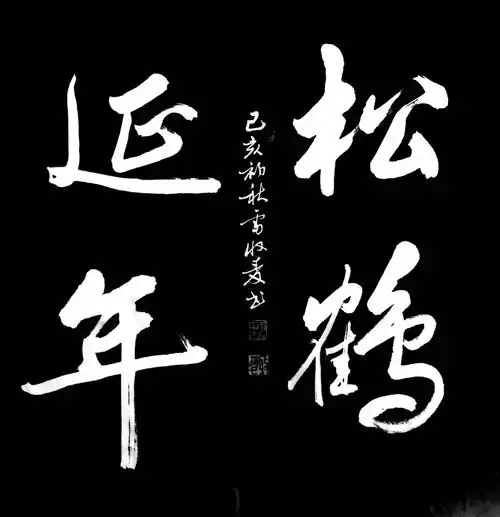 松鹤
延年
己亥初秋雷收麦书